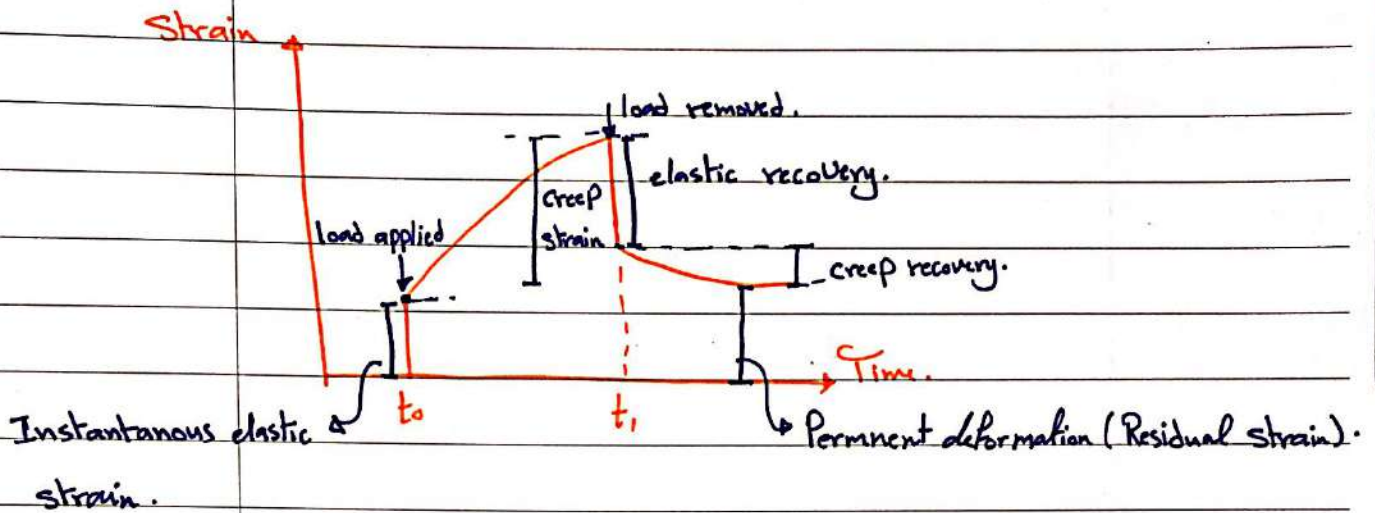 Strain
load removed.
elastic recovery.
creep
strain
load applied
creep recovery.
Time.
to
t1
Instantanous elastic
strain.
Permnent deformation (Residual strain).